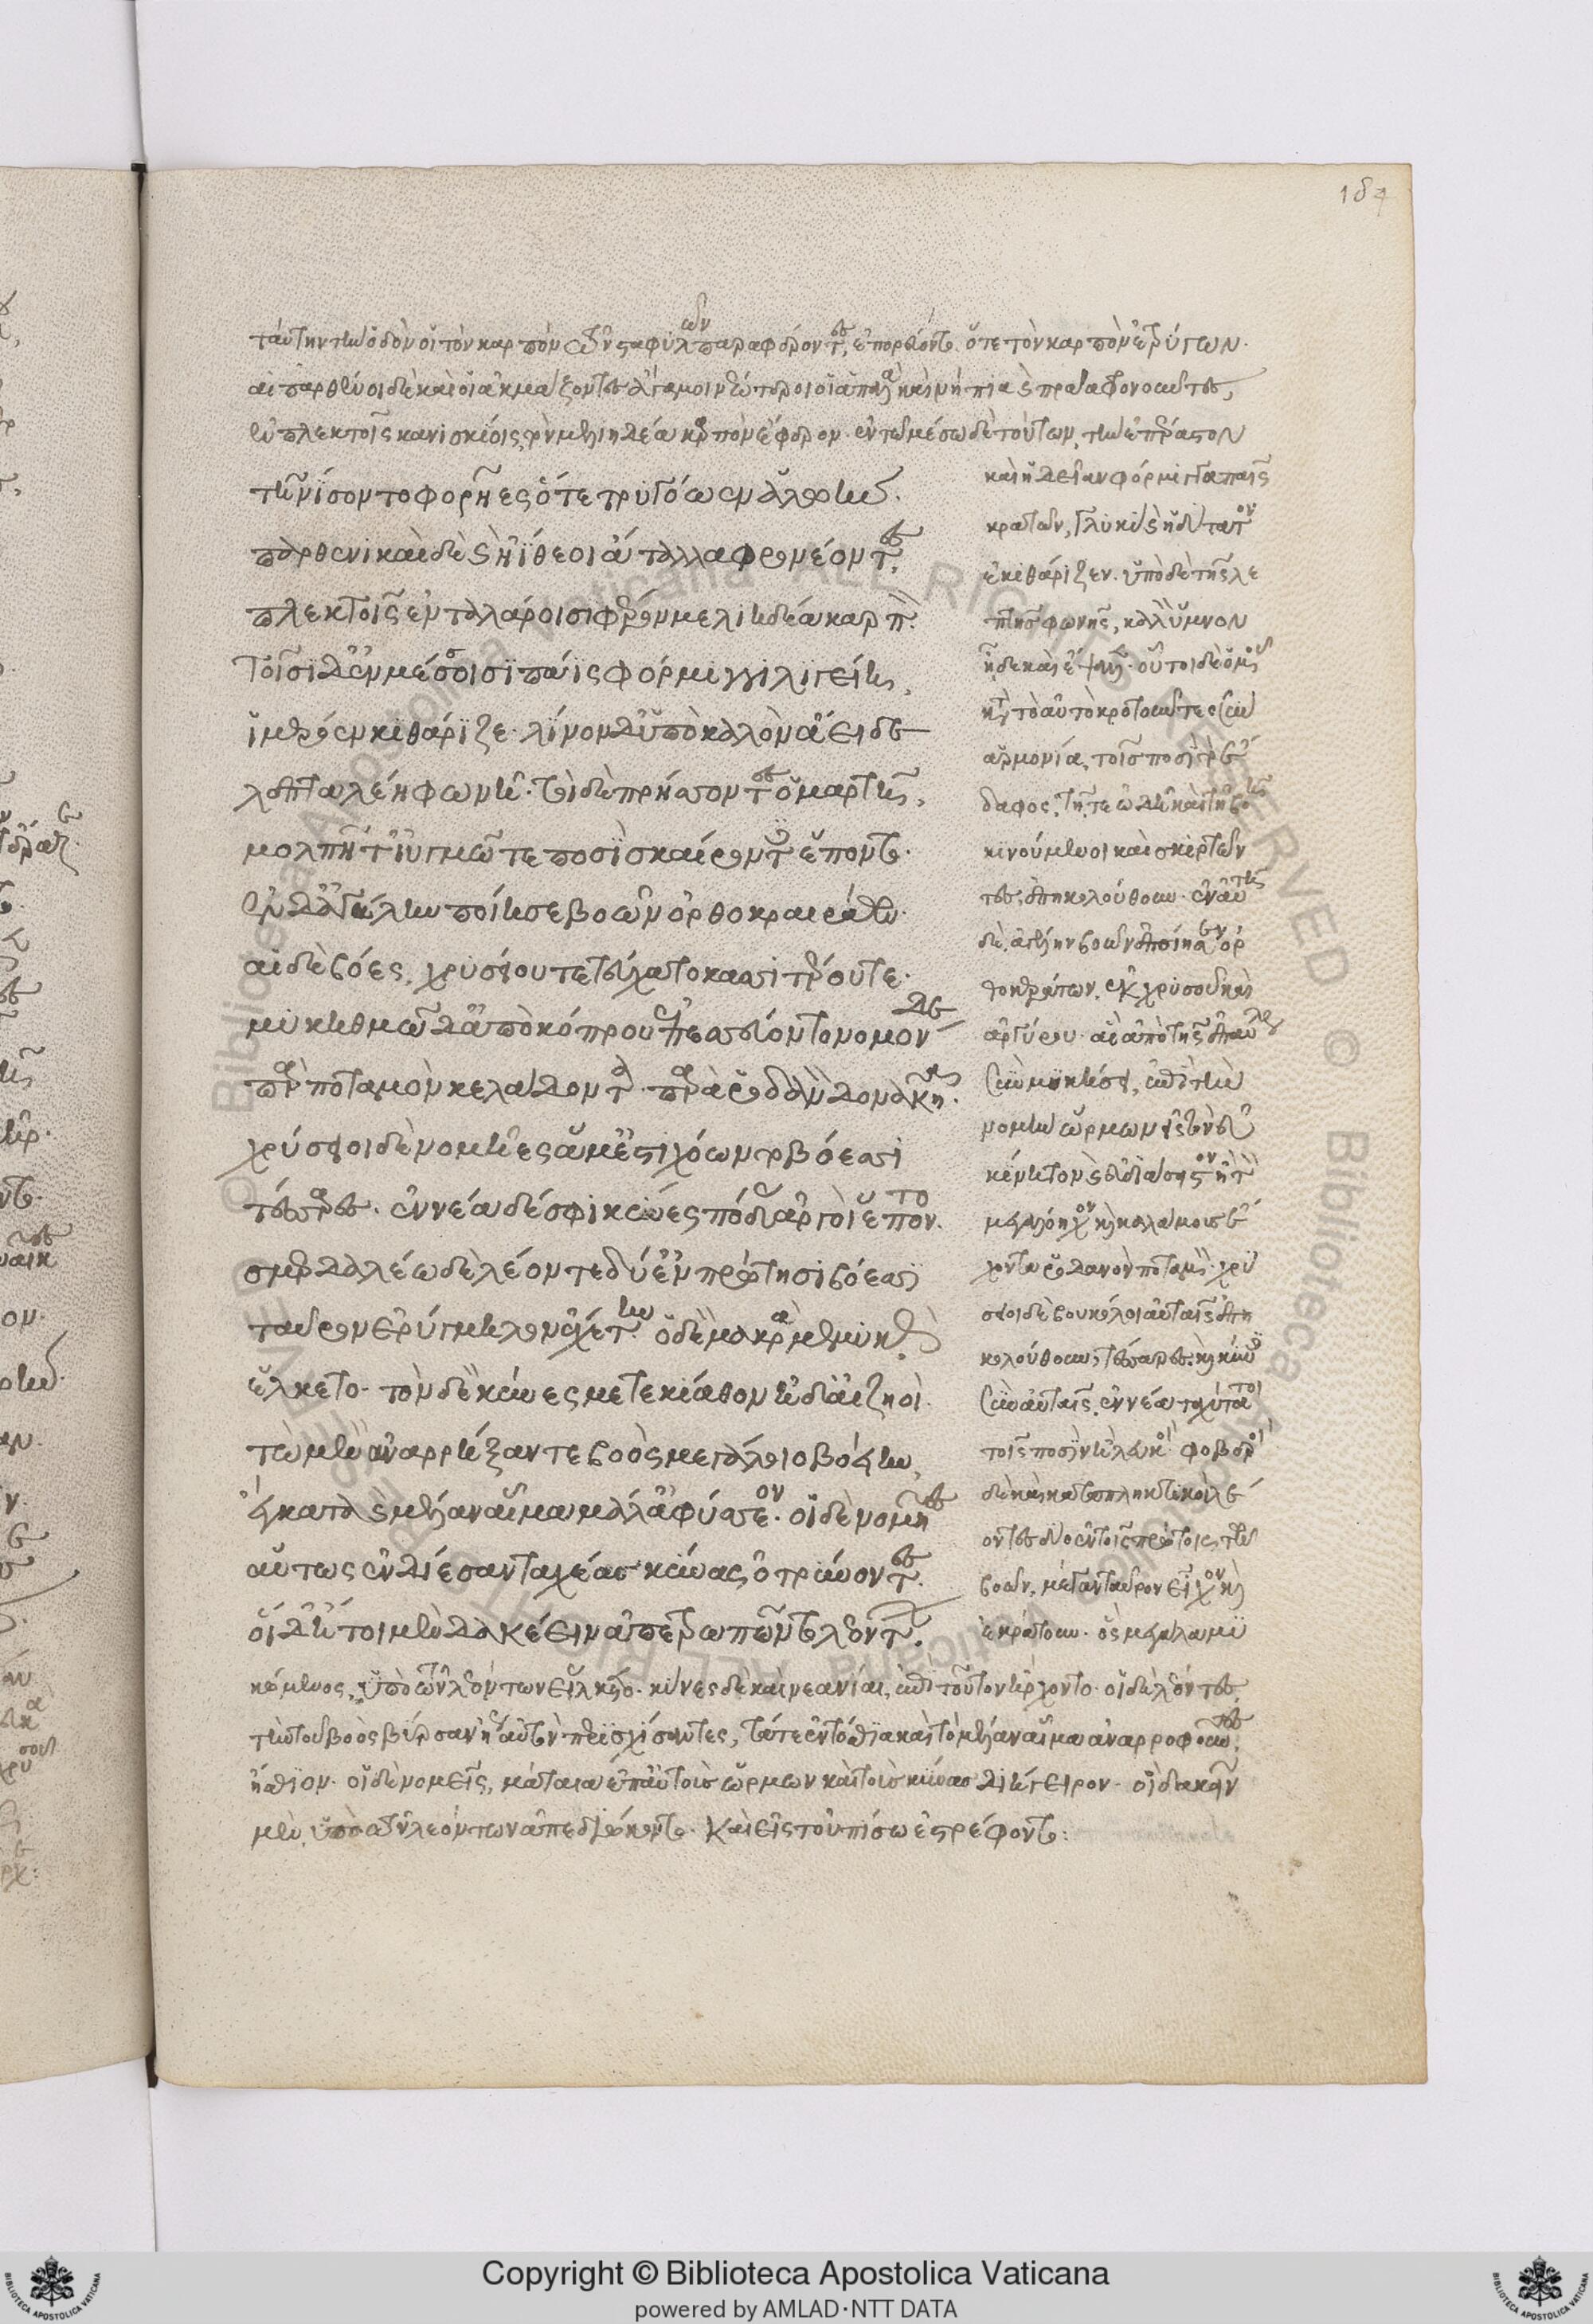 184
ταύτην τὴν ὁδὸν οἱ τὸν καρπὸν τῶν σταφυλῶν παραφέροντες, ἐπορεύοντο. ὅτε τὸν καρπὸν ἐτρύγων.
αἱ παρθένοι δὲ καὶ οἱ ἀκμάζοντες
εὐπλέκτοις κανισκίοις, τὸν μελιηδέα καρπὸν ἔφερον. ἐν τῷ μέσῳ δὲ τούτων,
τῇ νίσοντο φορῆες ὅτε τρυγόωεν ἀλωήν.
παρθενικαὶ δὲ καὶ ἠΐθεοι ἀταλλὰ φρονέοντες,
πλεκτοῖς ἐν ταλάροισι φέρον μελιηδέα καρπόν.
τοῖσι δ' ἐν μέσσοισι πάϊς φόρμιγγι λιγείη,
ἱμερόεν κιθάριζε· λίνον δ' ὑπὸ καλὸν ἄειδε
λεπταλέη φωνῇ· τοὶ δὲ πρήσσοντες ὁμαρτῇ,
μολπῇ τ' ἰυγμῷ τε ποσὶ σκαίροντες ἕποντο.
ἐν δ' ἀγέλην ποίησε βοῶν ὀρθοκραιράων.
αἱ δὲ βόες, χρυσοῖο τετεύχατο κασσιτέρου τε.
μυκηθμῷ δ' ἀπὸ κόπρου ἐπεσσεύοντο νομόνδε
πὰρ ποταμὸν κελάδοντα. παρὰ ῥοδανὸν δονακῆα.
χρύσειοι δὲ νομῆες ἅμ' ἐστιχόωντο βόεσσι
τέσσαρες. ἐννέα δέ σφι κύνες πόδας ἀργοὶ ἕποντο.
σμερδαλέω δὲ λέοντε δύ' ἐν πρώτῃσι βόεσσι
ταῦρον ἐρύγμηλον ἐχέτην. ὁ δὲ μακρὰ μεμυκὼς
ἕλκετο. τὸν δὲ κύνες μετεκίαθον ἠδ' αἰζηοί.
τὼ μὲν ἀναρρήξαντε βοὸς μεγάλοιο βοείην,
ἔγκατα καὶ μέλαν αἷμα λάφυσσετον. οἱ δὲ νομῆες
αὔτως ἐνδίεσαν ταχέας κύνας ὀτρύνοντες.
οἱ δ' ἤτοι μὲν δακέειν ἀπετρωπῶντο λεόντων.
καὶ ἡδεῖαν φόρμιγγα παῖς
κρατῶν, γλυκὺ καὶ ἥδιστον
ἐκιθάριζεν. ὑπὸ δὲ τῆς λε
πτῆς φωνῆς, καλὸν ὕμνον
ᾖδε καὶ ἔψαλλεν. οὗτοι δὲ ὁμοῦ
κατὰ τὸ αὐτὸ κροτοῦντες σὺν
ἁρμονίᾳ, τοῖς ποσὶ τὸ ἔ
δαφος, τῇ τε ᾠδῇ καὶ τῇ βοῇ
κινούμενοι καὶ σκιρτῶν
τες ἐπηκολούθουν. ἐν αὐτῇ
δὲ, ἀγέλην βοῶν ἐποίησεν ὀρ
θοκεράτων, ἐκ χρυσοῦ καὶ
ἀργύρου. αἳ ἀπὸ τῆς ἐπαύλεως
σὺν μυκήσει, ἐπὶ τὴν
νομὴν ὥρμων
χρύ
σεοι δὲ βουκόλοι αὐταῖς ἐπη
κολούθουν, τέσσαρες. καὶ κύνες
σὺν αὐταῖς, ἐννέα ταχύτατοι
τοῖς ποσὶν φοβεροὶ
δὲ καὶ καταπληκτικοὶ λέ
οντες δύο ἐν τοῖς πρώτοις τῶν
βοῶν, μέγαν ταῦρον εἶχον καὶ
ἐκράτουν. ὃς μεγάλα μυ
κώμενος, ὑπὸ τῶν λεόντων εἵλκετο. κύνες δὲ καὶ νεανίαι, ἐπὶ τοῦτον ἤρχοντο. οἱ δὲ λέοντες,
τὴν τοῦ βοὸς βύρσαν σχίσαντες, τά τε ἐντόσθια καὶ τὸ μέλαν αἷμα ἀναρροφοῦντες,
ἤσθιον. οἱ δὲ νομεῖς, μάταια ἐπ' αὐτοὺς ὥρμων καὶ τοὺς κύνας διήγειρον. οἳ δακεῖν
μὲν, ὑπὸ τῶν λεόντων ἀπεδιώκοντο. καὶ εἰς τοὐπίσω ἐστρέφοντο:
Copyright © Biblioteca Apostolica Vaticana
powered by AMLAD·NTT DATA